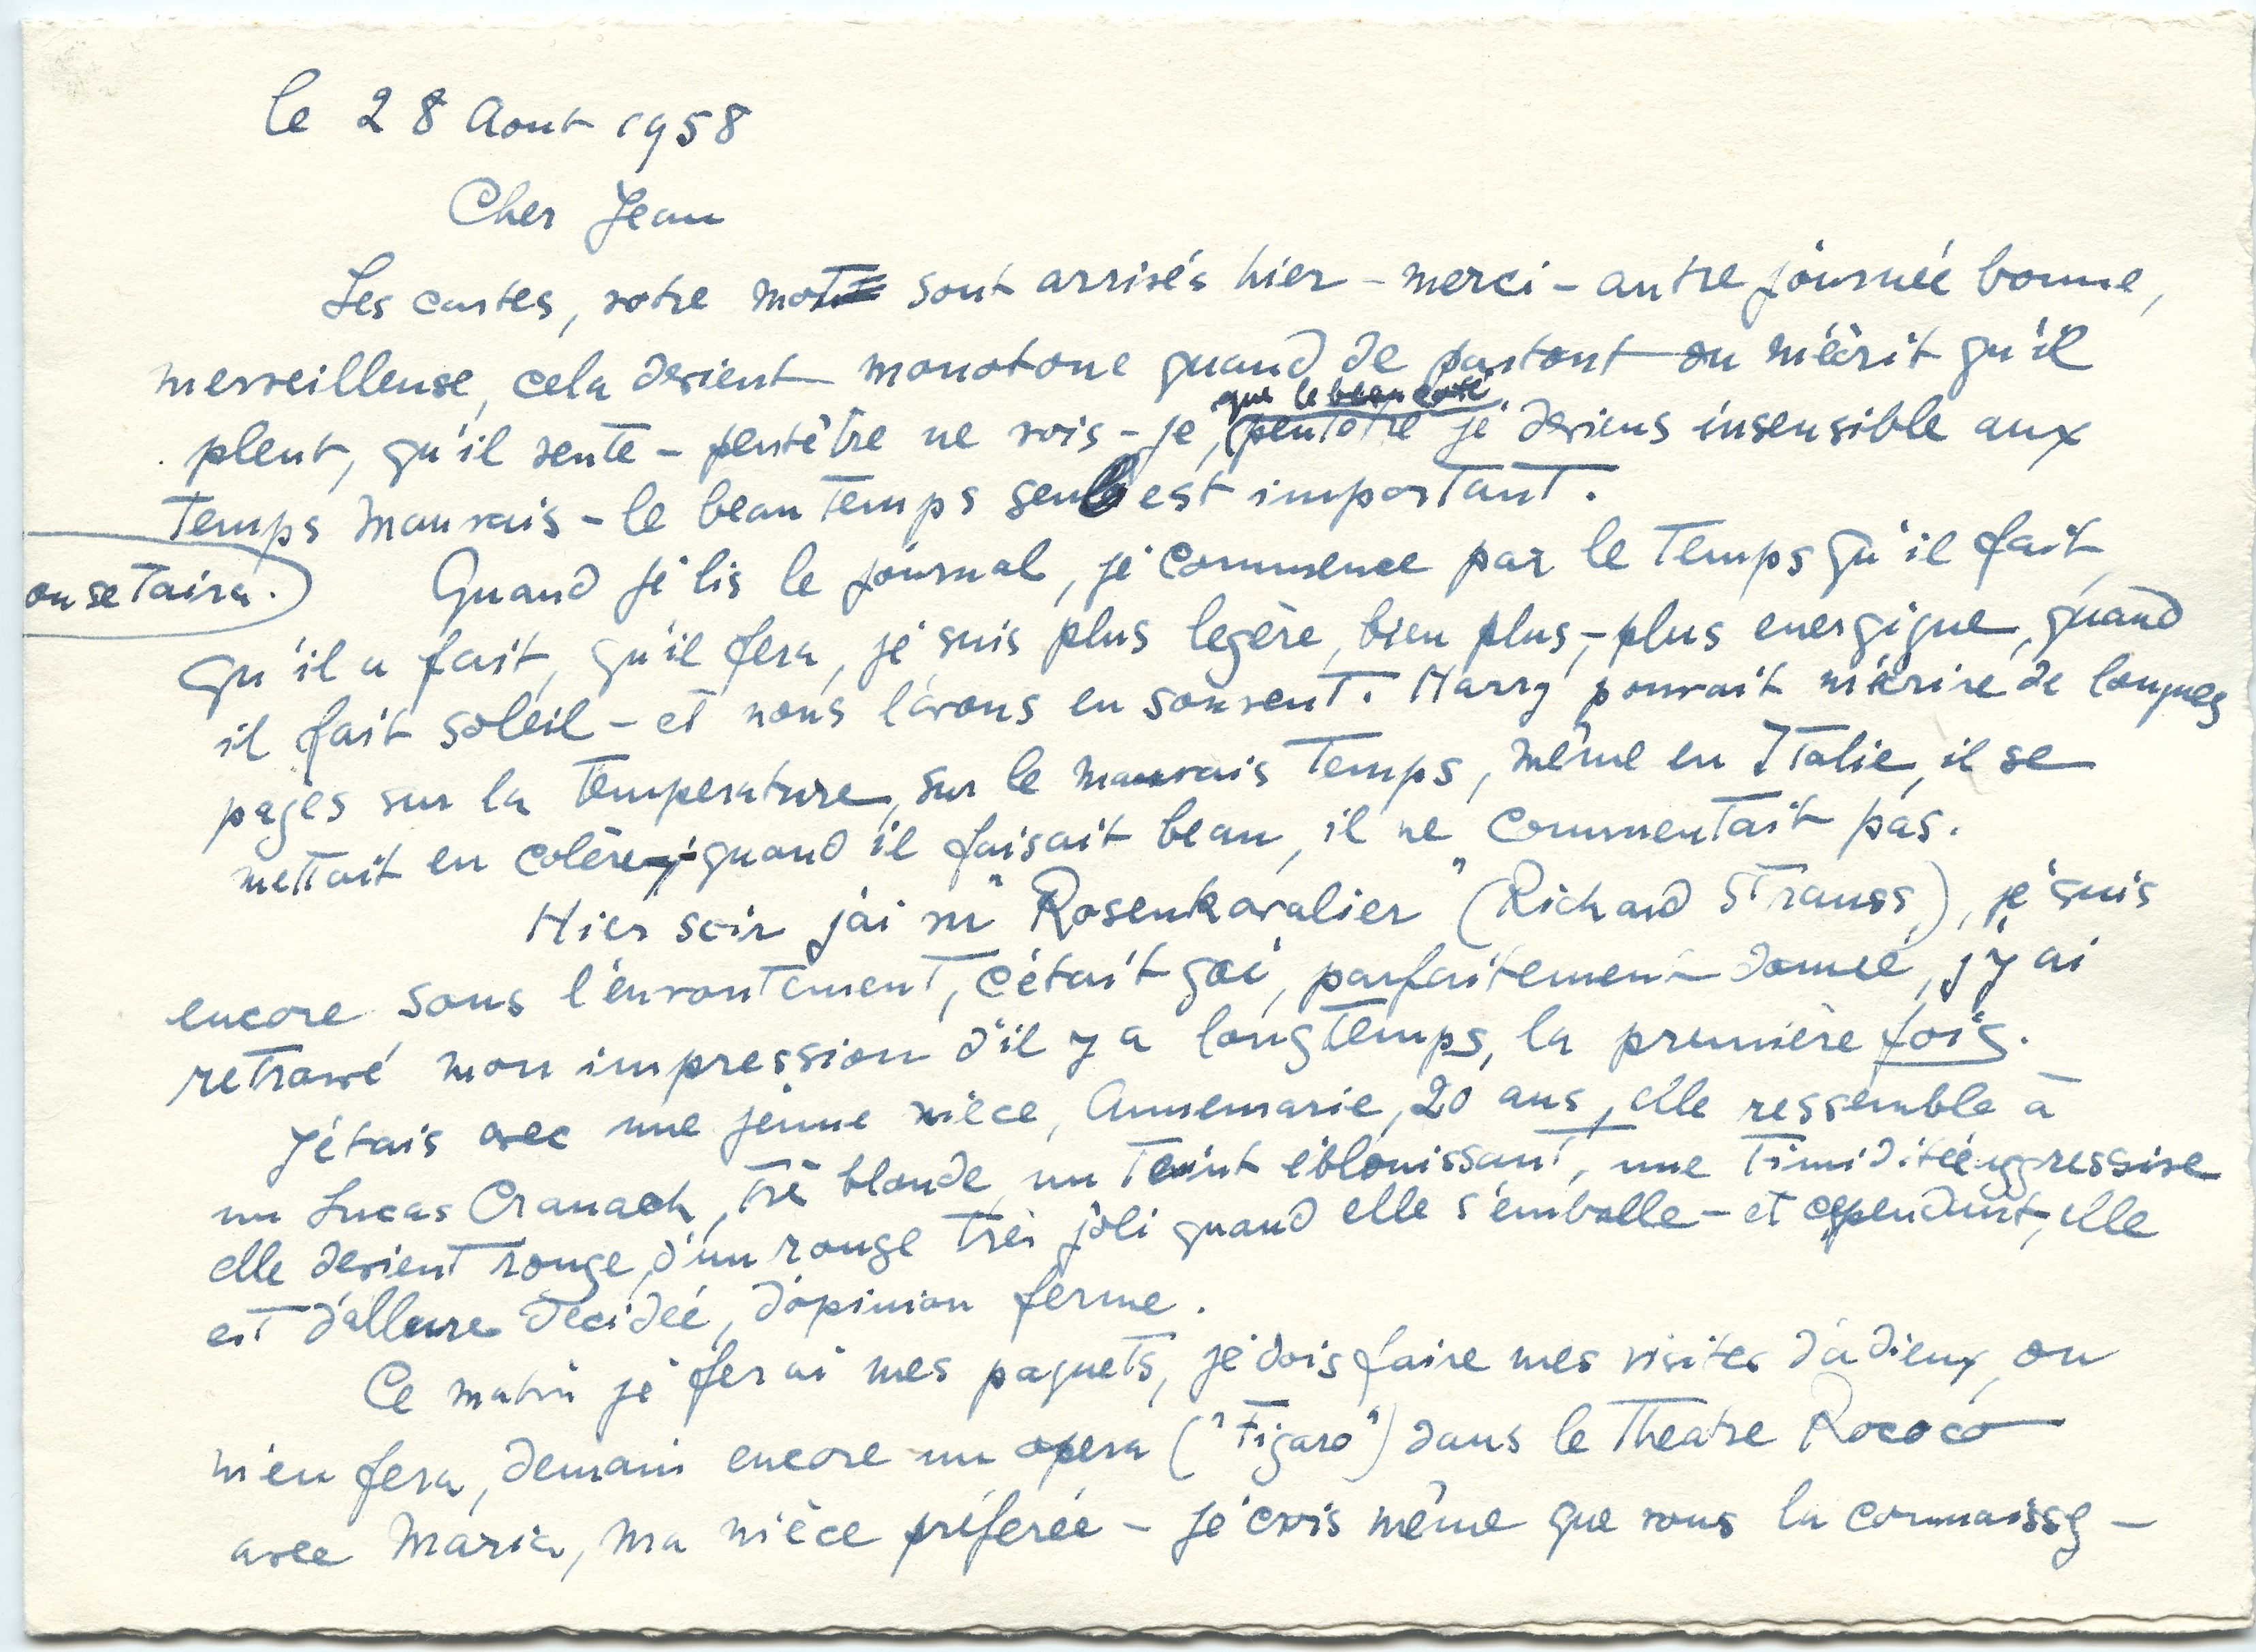 le 28 Aout 1958
Cher Jean
Les cartes, votre mot sont arrivés hier - merci - autre journeé bonne,
merveilleuse, cela devient monotone quand de partout on m'écrit qu'il
pleut, qu'il vente - peutêtre ne vois-je, que le beau coté
(peutetre je deviens insensible aux
temps mauvais - le beau temps seul est important.
on se taira.
Quand je lis le journal, je commence par le temps qu'il fait,
qu'il a fait, qu'il fera, je suis plus legère, bien plus, - plus energique, quand
il fait soleil - et nous l'avons eu souvent. Harry pouvait m'écrire de longues
pages sur la temperature, sur le mauvais temps, même en Italie, il se
mettait en colère, - quand il faisait beau, il ne commentait pas.
Hier soir j'ai vu "Rosenkavalier" (Richard Strauss), je suis
encore sous l'envoutement, c'était gai, parfaitement donneé, j'y ai
retrouvé mon impression d'il y a longtemps, la première fois.
J'étais avec une jeune nièce, Annemarie, 20 ans, elle ressemble à
un Lucas Cranach, trè blonde, un teint éblouissant, une timiditeé aggressive
elle devient rouge, d'un rouge très joli quand elle s'emballe - et cependant, elle
est d'allure decideé, d'opinion ferme.
Ce matin je ferai mes paquets, je dois faire mes visites d'adieux, on
m'en fera, demain encore un opera ("Figaro") dans le Theatre Rococo
avec Maria, ma nièce préfereé - je crois même que vous la connaissez -